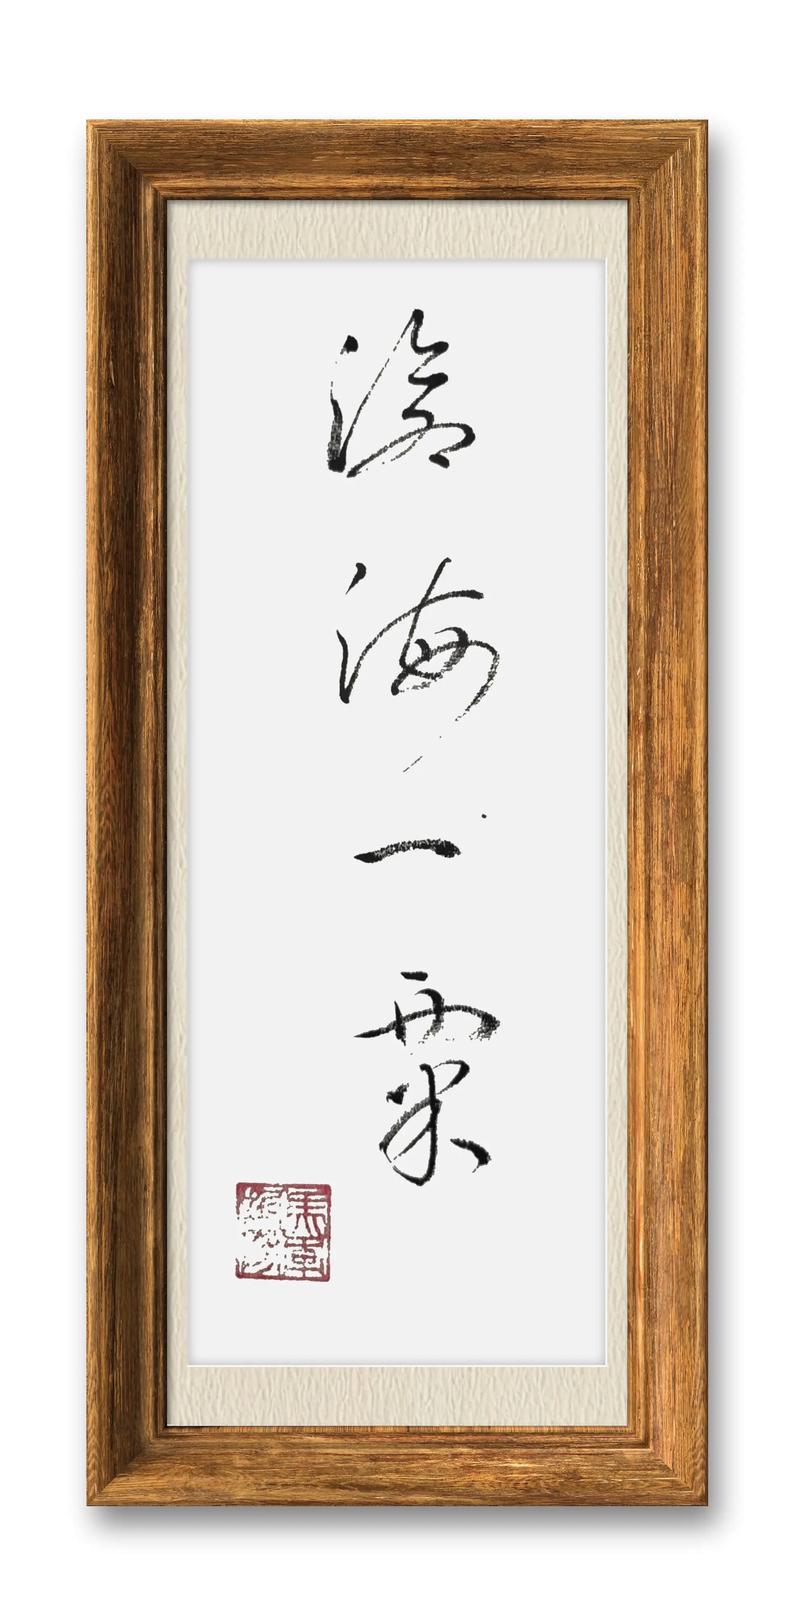 滄海一粟